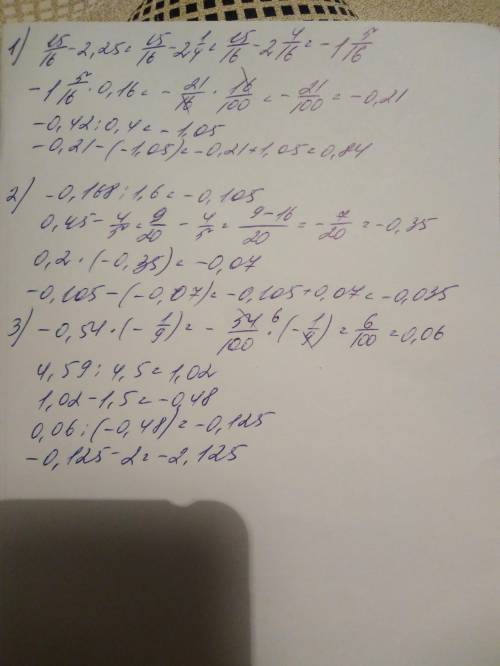 1) 15/16 - 2,25 = 15/16 - 2 1/4 = 15/16 - 2 4/16 = -1 5/16
-1 5/16 · 0,16 = - 21/16 · 16/100 = - 21/100 = -0,21
-0,42 : 0,4 = -1,05
-0,21 - (-1,05) = -0,21 + 1,05 = 0,84
2) -0,168 : 1,6 = -0,105
0,45 - 4/5 = 9/20 - 4/5 = 9-16/20 = - 7/20 = -0,35
0,2 · (-0,35) = -0,07
-0,105 - (-0,07) = -0,105 + 0,07 = -0,035
3) -0,54 · (- 1/9) = - 54/100 6 · (- 1/9) = 6/100 = 0,06
4,59 : 4,5 = 1,02
1,02 - 1,5 = -0,48
0,06 : (-0,48) = -0,125
-0,125 - 2 = -2,125